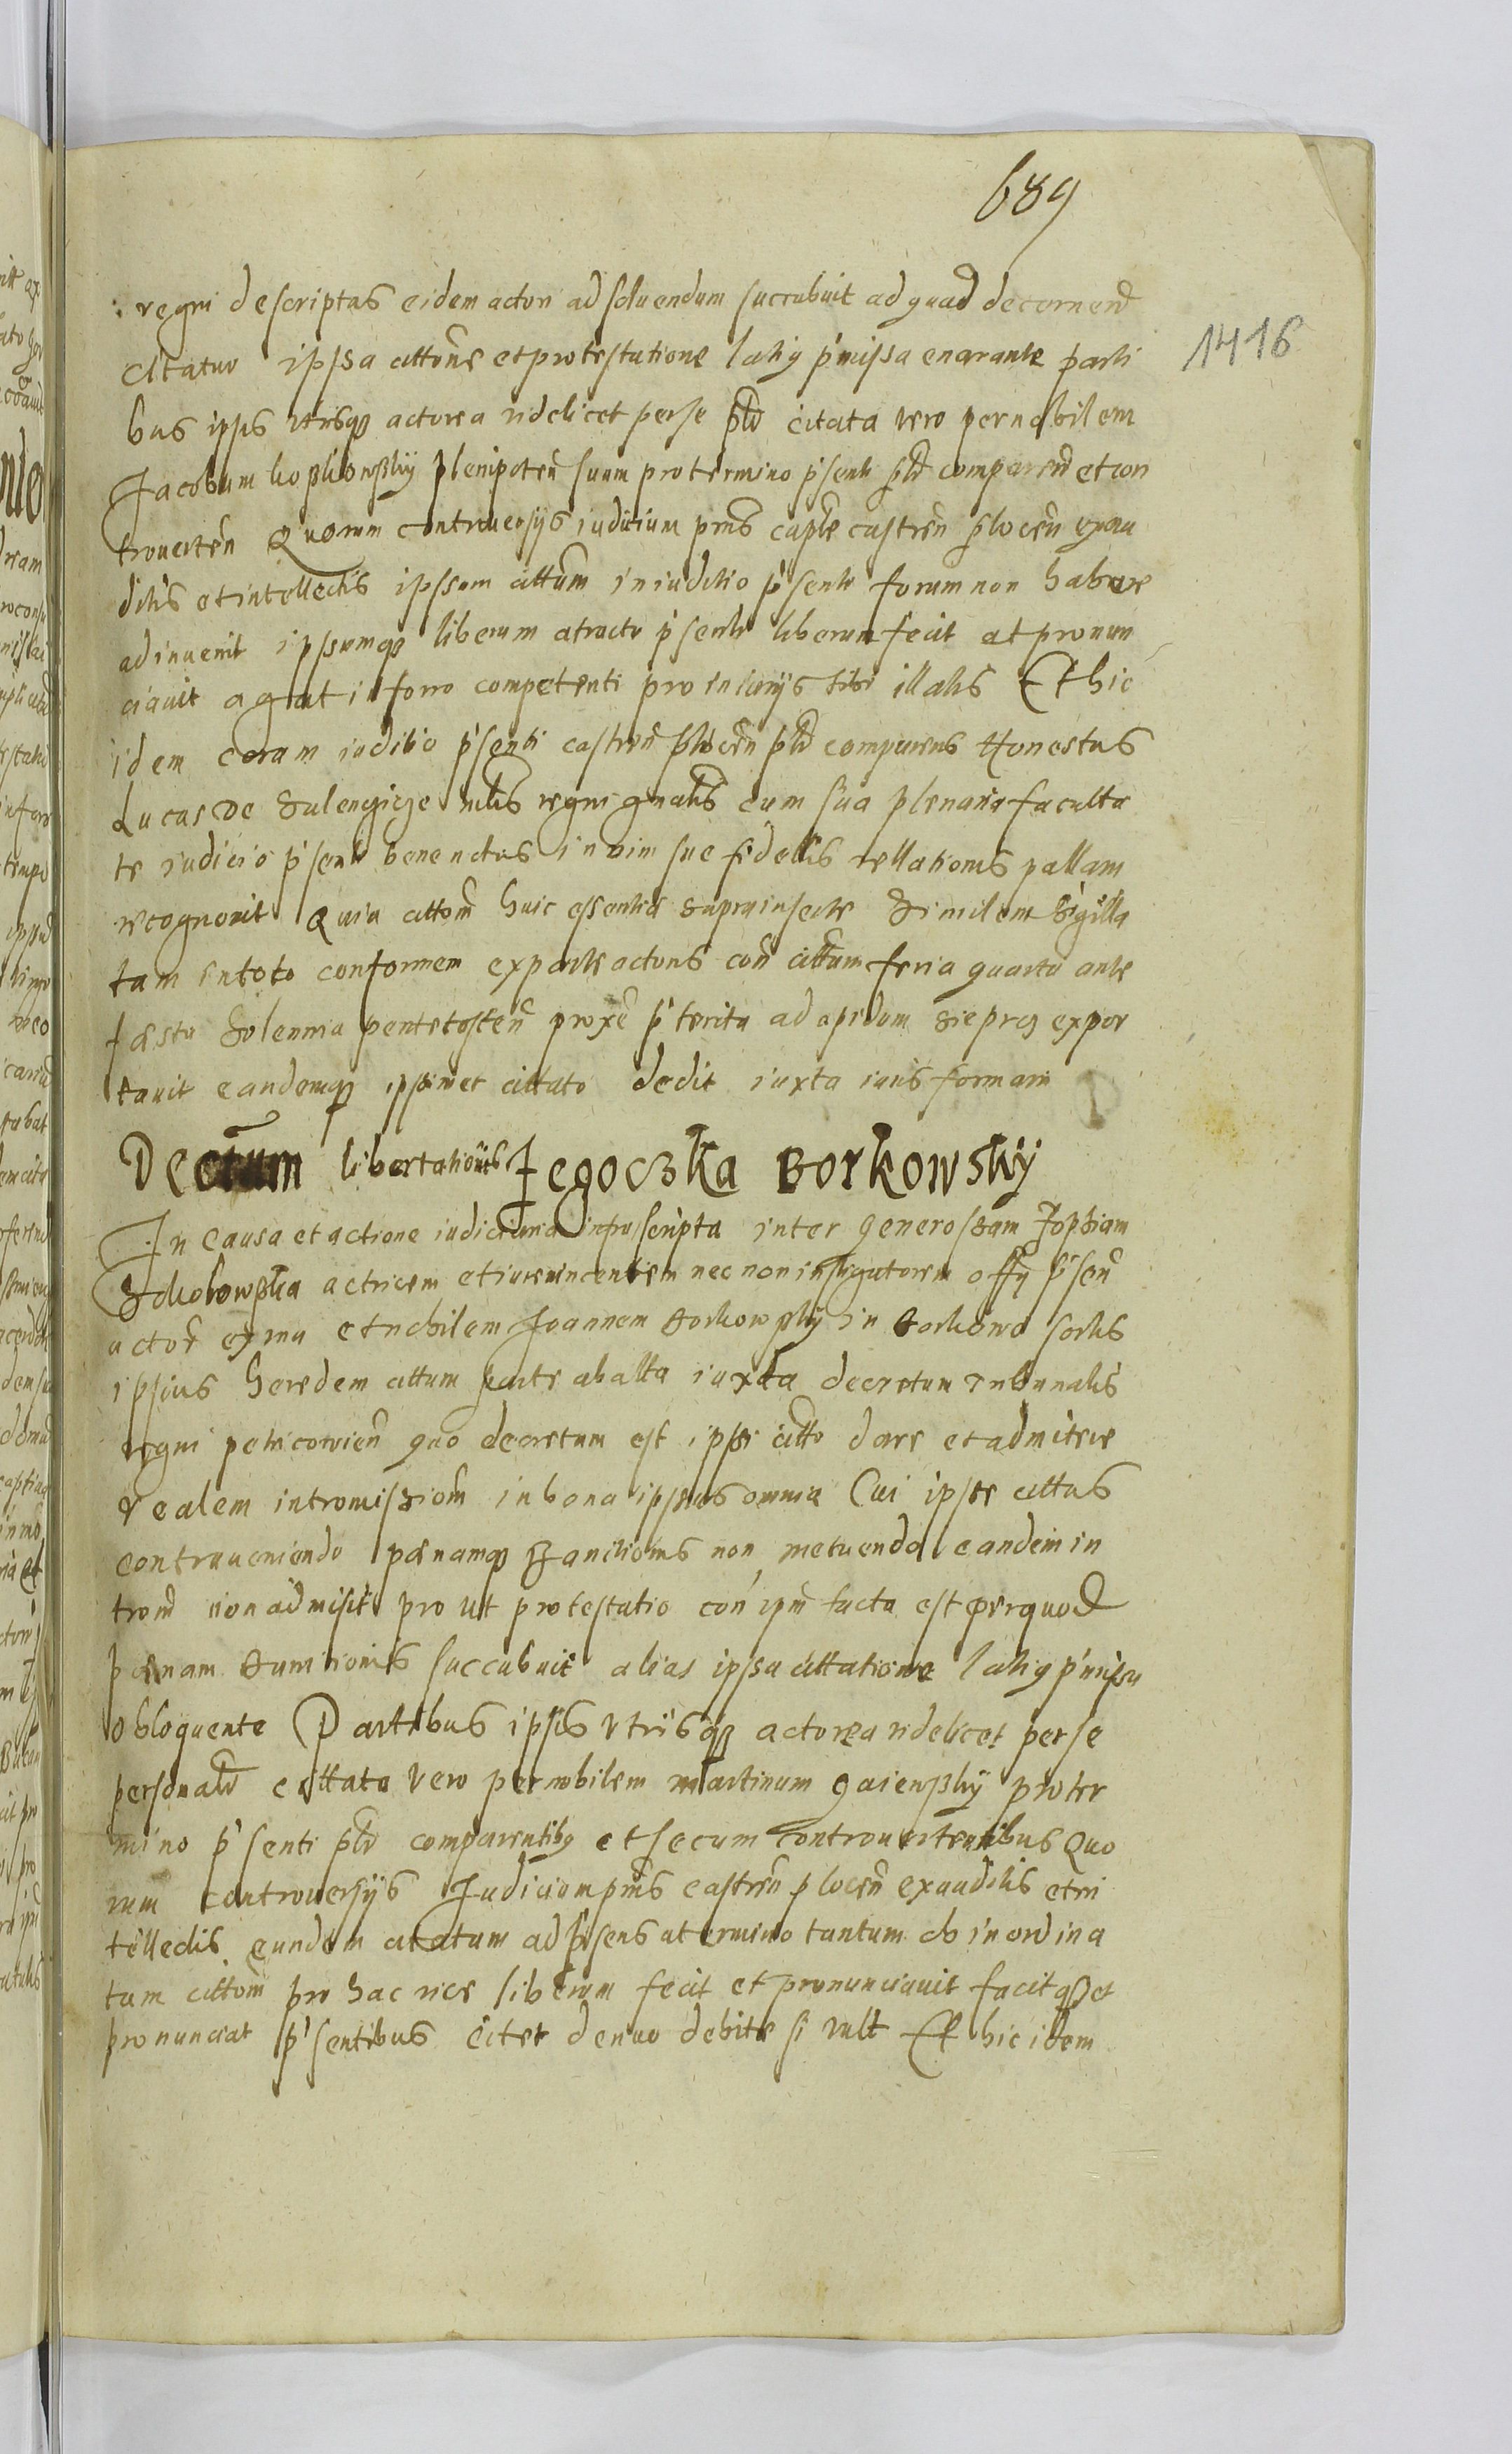 689
1416
regni descriptas eidem actori ad soluendum succubuit ad quad decernend
citatur ipssa cittone et protestatione latig p'missa enarante parti
bus ipsis utrisq actorea videlicet perse plr citata vero per nobilem
Jacobum plenipoten suum pro termino p'senti plr comparen et con
trouerten Quorum controuersijs iudicium pnis castren plocen exau
ditis et intellectis ipssum cittum in iuditio p'senti forum non habere
adinuenit ipssumq liberum p'senti liberum fecit at pronun
ciauit agat i forro competenti pro iniurijs sibi illatis Et hic
idem coram iuditio p'senti castren plocen plr comparens Honestus
Lucas de mlis regni gnalis cum sua plenaria faculta
te iudicio p'senti bene notus in vim sue fidelis rellationis pallam
recognouit Quia cittom huic essentia suprainserte similem sigilla
tam in toto conformem ex parte actoris con cittum feria quarta ante
festa solennia pentecosten proxe p'terita ad opidum Sieprcz expor
tauit eandemq ipsimet cittato dedit iuxta iuris formam
Decretum libertationis Jegoczka Borkowsky
In causa et actione iudiciaria infrascripta inter generosam Zophiam
actricem et iurevincentem nec non instigatorem offy p'sen
actor ex una et nobilem Joannem Borkowsky in Borkowo sortis
ipsius heredem cittum parte ab alta iuxta decretum tribunalis
regni petricouien quo decretum est ipssi citto dare et admitere
realem intromissiom in bona ipsius omnia Cui ipse cittus
contraueniendo pœnamq Banitionis non metuendo eandem in
trom non admisit pro ut protestatio con ipm facta est per quod
pœnam Banitionis succubuit alias ipsa cittatione latig p'missa
obloquente Partibus ipsis utrisq actorea videlicet per se
personalr cittata vero per nobilem Martinum gaiewsky pro ter
mino p'senti plr comparentibq et secum controuertentibus Quo
rum controuersijs Judicium pnis castren plocen exauditis et in
tellectis eundem citatum ad p'sens a termino tantum ob inordina
tam cittom pro hac vice liberum fecit et pronunciauit facitq et
pronunciat p'sentibus Citet denuo debite si vult Et hic idem